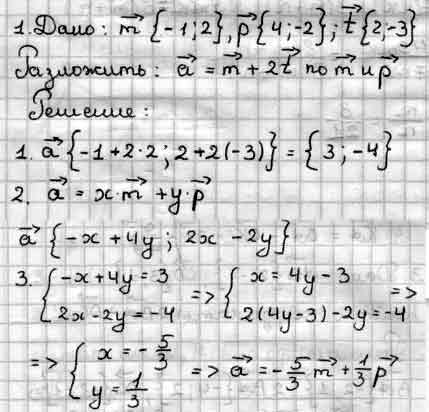 1. Дано: m⃗ {-1; 2}, p⃗ {4; -2}; t⃗ {2; -3}
Разложить: a⃗ = m⃗ + 2t⃗ по m⃗ и p⃗
Решение:
1. a⃗ {-1+2·2; 2+2(-3)} = {3; -4}
2. a⃗ = x·m⃗ + y·p⃗
a⃗ {-x + 4y; 2x - 2y}
3. { -x + 4y = 3 => { x = 4y - 3 =>
2x - 2y = -4 2(4y-3) - 2y = -4
=> { x = -5/3 => a⃗ = -5/3 m⃗ + 1/3 p⃗
y = 1/3